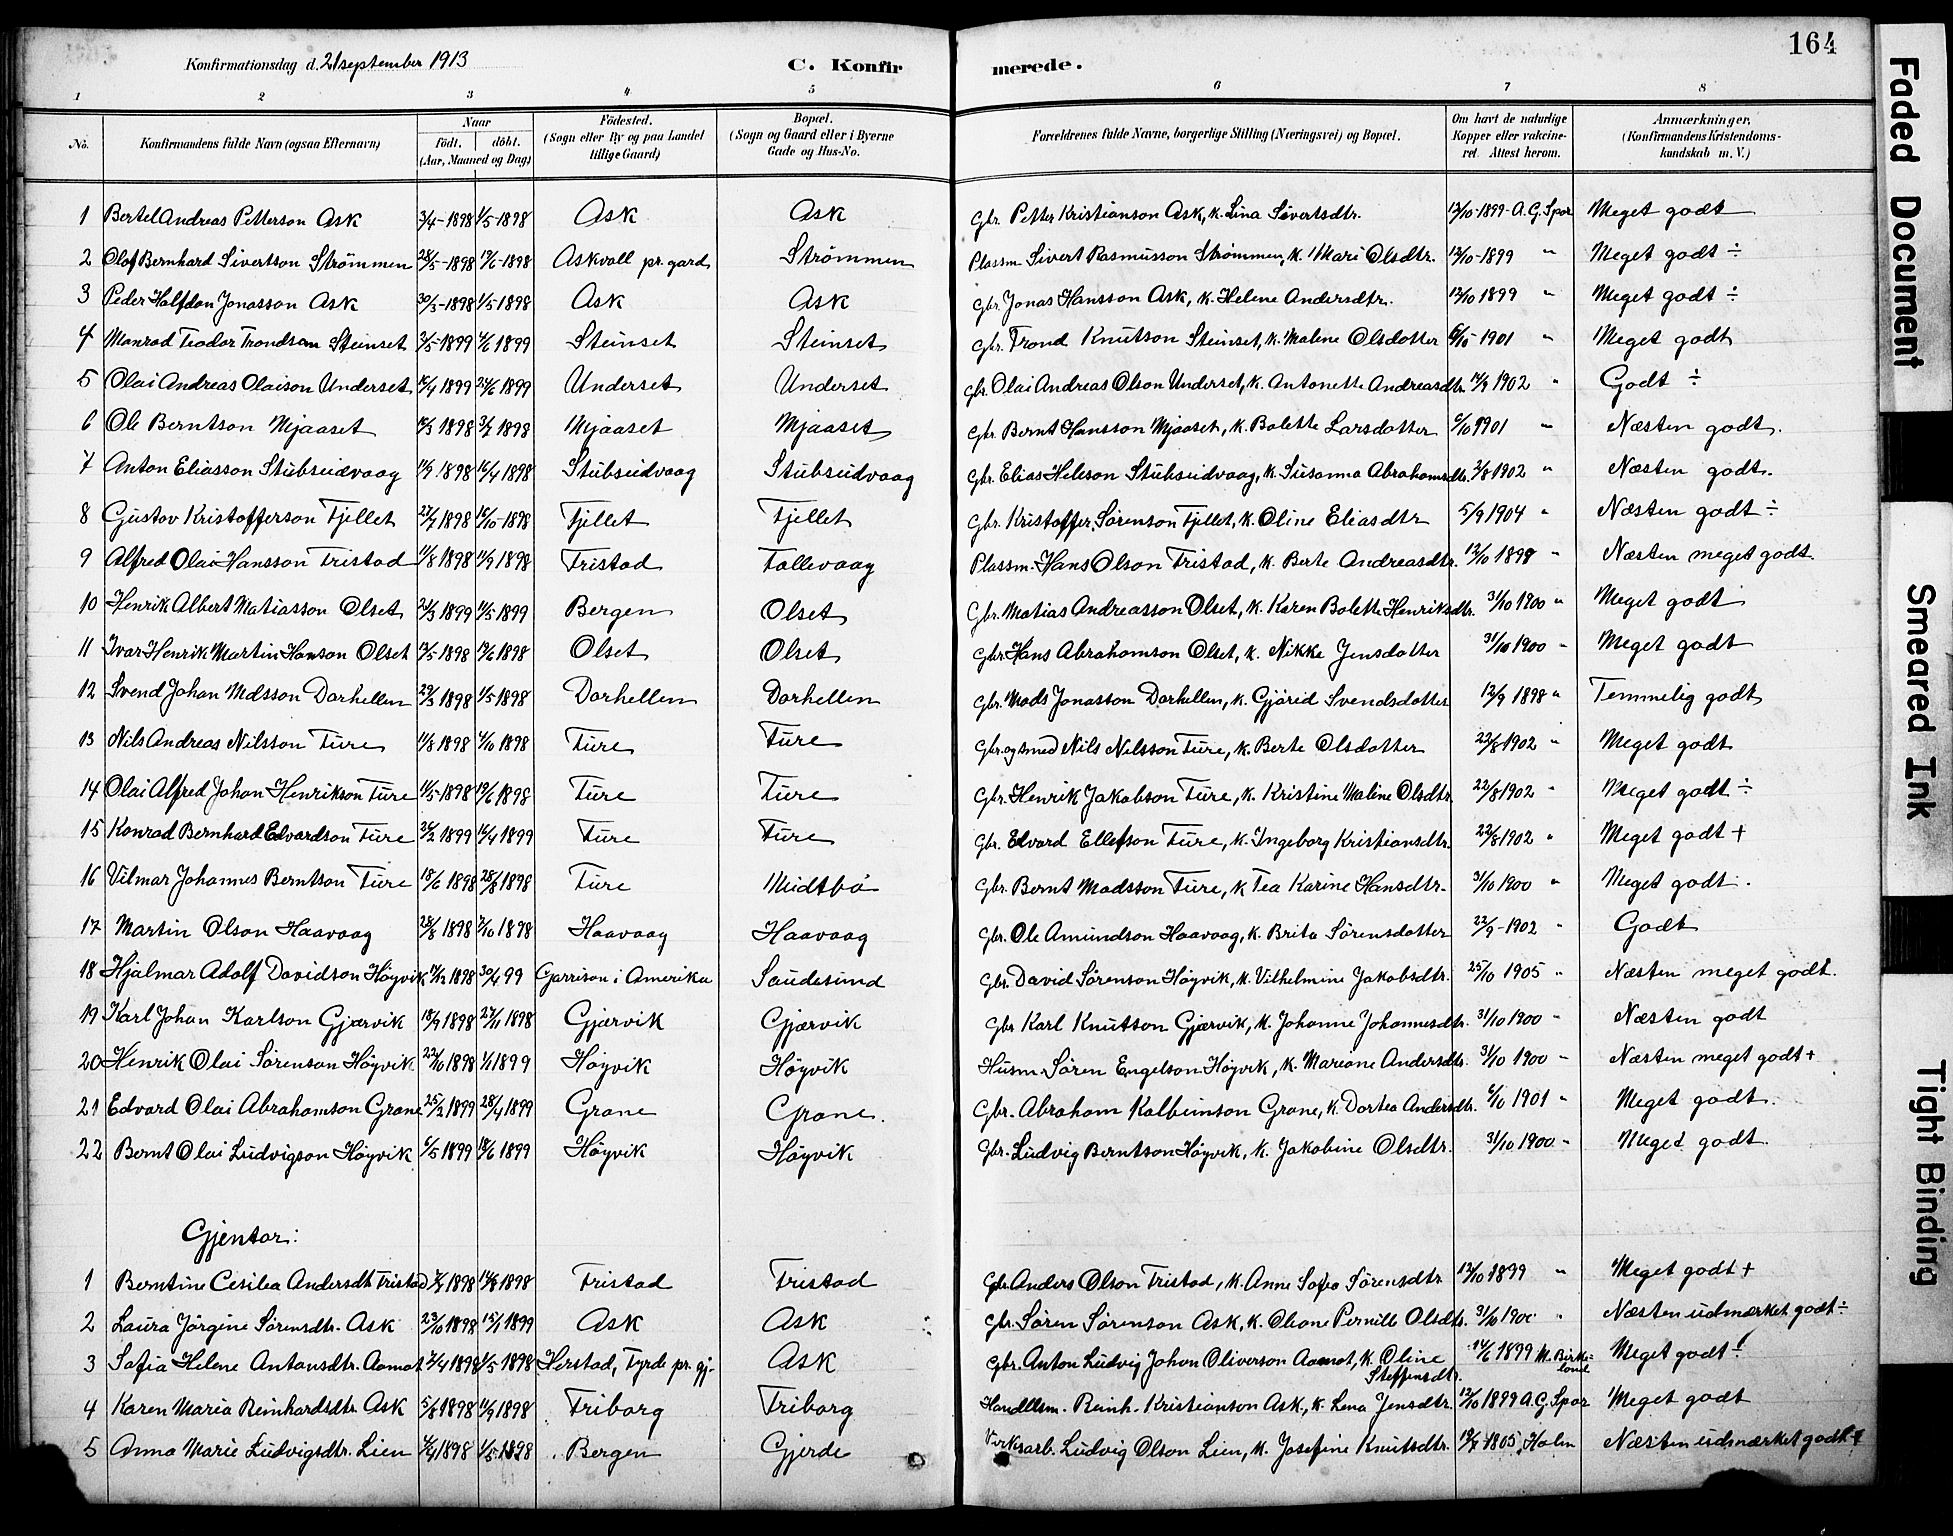 164
Konfirmationsdag d. 21 september 1913 C. Konfirmerede.
1 2 3 4 5 6 7 8
No. Konfirmandens fulde Navn (ogsaa Efternavn) Naar födt. döbt. (Aar, Maaned og Dag) Födested. (Sogn eller By og paa Landet tillige Gaard) Bopæl. (Sogn og Gaard eller i Byerne Gade og Hus-No. Forældrenes fulde Navne, borgerlige Stilling (Næringsvei) og Bopæl. Om havt de naturlige Kopper eller vakcineret. Attest herom. Anmærkninger, (Konfirmandens Kristendomskundskab m. V.)
1 Bertel Andreas Petterson Ask 3/4-1898 1/5-1898 Ask Ask Gbr. Petter Kristianson Ask, k. Lina Sivertsdtr. 12/10-1899-A.G. Spor Meget godt
2 Olaf Bernhard Sivertson Strömmen 28/5-1898 19/6-1898 Askvoll pr. gard Strömmen Plassm. Sivert Rasmusson Strömmen, k. Mari Olsdtr. 12/10-1899 " Meget godt ÷
3 Peder Halfdan Jonasson Ask 30/3-1898 1/5 1898 Ask Ask Gbr. Jonas Hansson Ask, k. Helene Andersdtr. 12/10 1899 " Meget godt ÷
4 Monrad Teodor Trondson Steinset 2/5-1899 11/6 1899 Steinset Steinset Gbr. Trond Knutson Steinset, k. Malene Olsdotter 6/10-1901 " Meget godt
5 Olai Andreas Olaison Underset 1899 24/6 1899 Underset Underset Gbr. Olai Andreas Olson Underset, k. Antonette Andreasdtr. 1902 " Godt ÷
6 Ole Berntson Mjaaset 1898 1898 Mjaaset Mjaaset Gbr. Bernt Hansson Mjaaset, k. Bolette Larsdotter 6/10 1901 " Næsten godt.
7 Anton Eliasson Stubseidvaag 1898 1898 Stubseidvaag Stubseidvaag Gbr. Elias Heleson Stubseidvaag, k. Susanna Abrahamsdtr. 2/8 1902 " Næsten godt.
8 Gustav Kristofferson Fjellet 1898 16/10-1898 Fjellet Fjellet Gbr. Kristoffer Sörenson Fjellet, k. Oline Eliasdtr 5/9 1904 " Næsten godt ÷
9 Alfred Olai Hansson Tristad 11/8 1898 11/9 1898 Tristad Follevaag Plassm. Hans Olson Tristad, k. Berte Andreasdtr. 12/10 1898 " Næsten meget godt
10 Henrik Albert Matiasson Olset 1899 1899 Bergen Olset Gbr. Matias Andreasson Olset, k. Karen Bolette Henriksdtr. 31/10 1900 " Meget godt
11 Ivar Henrik Martin Hanson Olset 1898 19/6 1898 Olset Olset Gbr. Hans Abrahamson Olset, k. Nikke Jensdotter 31/10 1900 " Meget godt
12 Svend Johan Madsson Dorhellen 29/3 1898 1/5-1898 Dorhellen Dorhellen Gbr. Mads Jonasson Dorhellen, k. Gjörid Svendsdotter 12/9 1898 " Temmelig godt
13 Nils Andreas Nilsson Fure 11/8 1898 1898 Fure Fure Gbr. og smed Nils Nilsson Fure, k. Berte Olsdotter 22/8-1902 " Meget godt
14 Olai Alfred Johan Henrikson Fure 11/5-1898 19/6 1898 Fure Fure Gbr. Henrik Jakobson Fure, k. Kristine Maline Olsdtr. 22/8 1902 " Meget godt ÷
15 Konrad Bernhard Edvardson Fure 1899 16/4 1899 Fure Fure Gbr. Edvard Ellefson Fure, k. Ingeborg Kristiansdtr. 22/8 1902 " Meget godt +
16 Vilmar Johannes Berntson Fure 18/6 1898 28/8 1898 Fure Midtbö Gbr. Bernt Madsson Fure, k Tea Karine Hansdtr. 31/10 1900 " Meget godt.
17 Martin Olson Haavaag 28/8 1898 1898 Haavaag Haavaag Gbr. Ole Amundson Haavaag, k. Brita Sörensdotter 22/9-1902 " Godt
18 Hjalmar Adolf Davidson Höyvik 1898 30/4 99 Garrison i Amerika Saudesund Gbr. David Sörenson Höyvik, k. Vilhelmine Jakobsdtr. 25/10 1905 " Næsten meget godt.
19 Karl Johan Karlson Gjærvik 18/9 1898 27/11 1898 Gjærvik Gjærvik Gbr Karl Knutson Gjærvik, k. Johanne Johannesdtr. 31/10 1900 " Næsten godt
20 Henrik Olai Sörenson Höyvik 22/10 1898 1/1 1899 Höyvik Höyvik Husm. Sören Engelson Höyvik, k. Mariane Andersdtr. 31/10 1900 " Næsten meget godt +
21 Edvard Olai Abrahamson Grane 25/2 1899 28/4 1899 Grane Grane. Gbr. Abraham Kolbeinson Grane, k. Dortea Andersdtr. 6/10 1901 " Meget godt.
22 Bernt Olai Ludvigson Höyvik 6/5 1899 18/6 1899 Höyvik Höyvik Gbr. Ludvig Berntson Höyvik, k. Jakobine Olsdtr. 31/10 1900 " Meget godt.
Gjentor:
1 Berntine Cesilea Andersdtr Tristad 1898 1898 Tristad Tristad Gbr. Anders Olson Tristad, k. Anne Sofea Sörensdtr 12/10 1899 " Meget godt +
2 Laura Jörgine Sörensdtr. Ask 23/10 1898 15/1 1899 Ask Ask Gbr. Sören Sörenson Ask, k. Oleane Pernille Olsdtr. 31/10 1900 " Næsten udmærket godt ÷
3 Sofia Helene Antonsdtr. Aamot 7/4 1898 1/5 1898 Herstad, Fyrde pr. gj. Ask Gbr. Anton Ludvig Johan Oliverson Aamot, k. Oline Steffensdtr. 14/6 1899 M. Birkeland Meget godt ÷
4 Karen Maria Reinhardsdtr. Ask 5/8 1898 11/9 1898 Friborg Friborg Handelsm. Reinh. Kristianson Ask, k. Lena Jensdtr. 12/10 1899 A.G. Spor Meget godt
5 Anna Marie Ludvigsdtr. Lien 1898 1/5 1898 Bergen Gjerde Verksarb. Ludvig Olson Lien, k. Josefine Knutsdtr. 1805, Holm Næsten udmærket godt +
Faded Document
Smeared Ink
Tight Binding